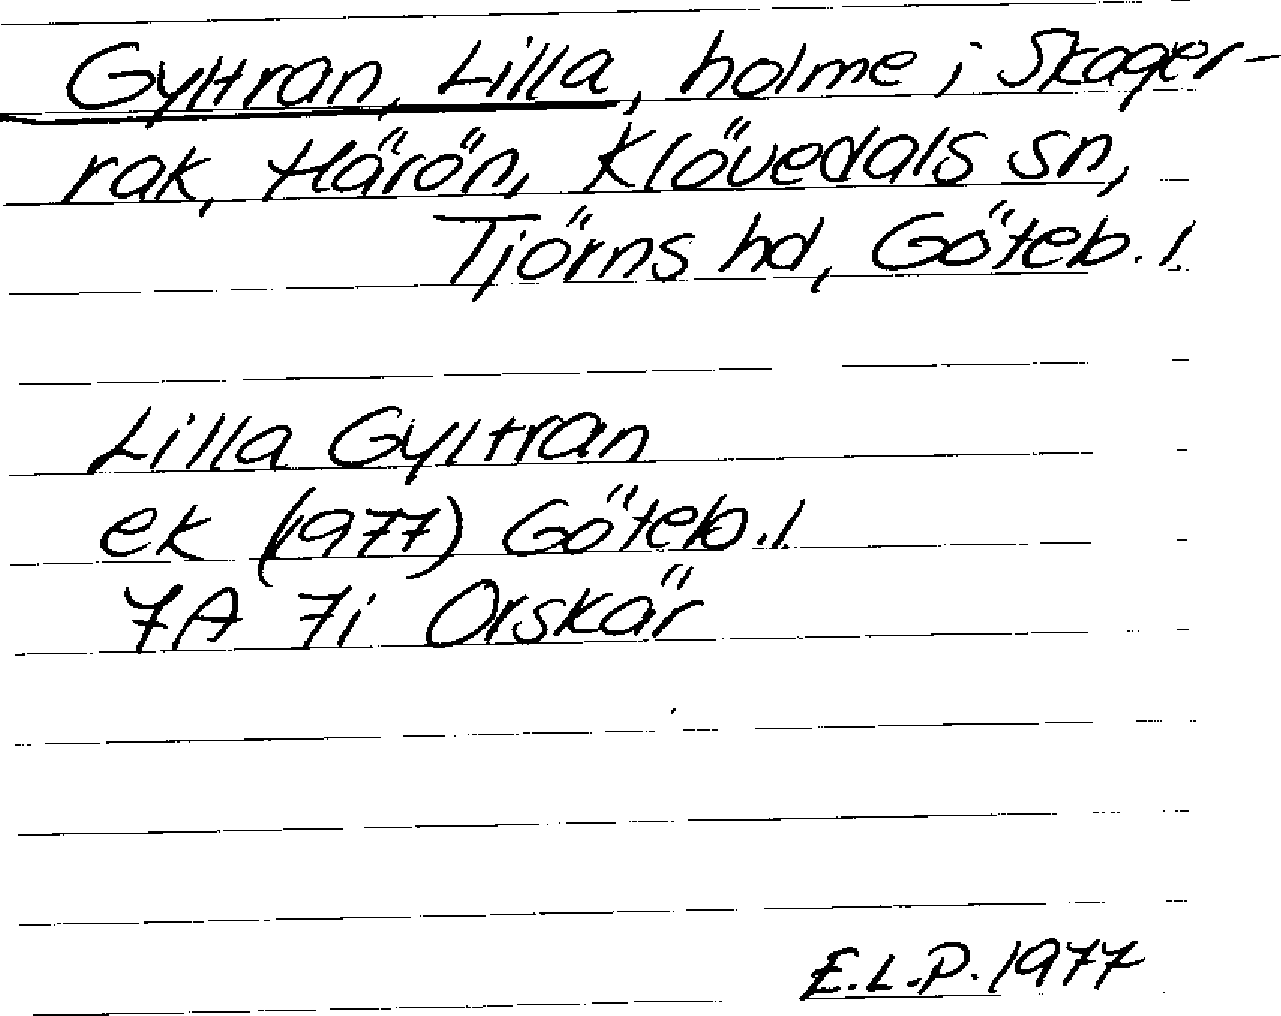 Gyltran, Lilla, holme i Skager-
rak, Härön, Klövedals sn,
Tjörns hd, Göteb. l
Lilla Gyltran
ek (1977) Göteb. l
7A 7i Orskär
E.L.P. 1977